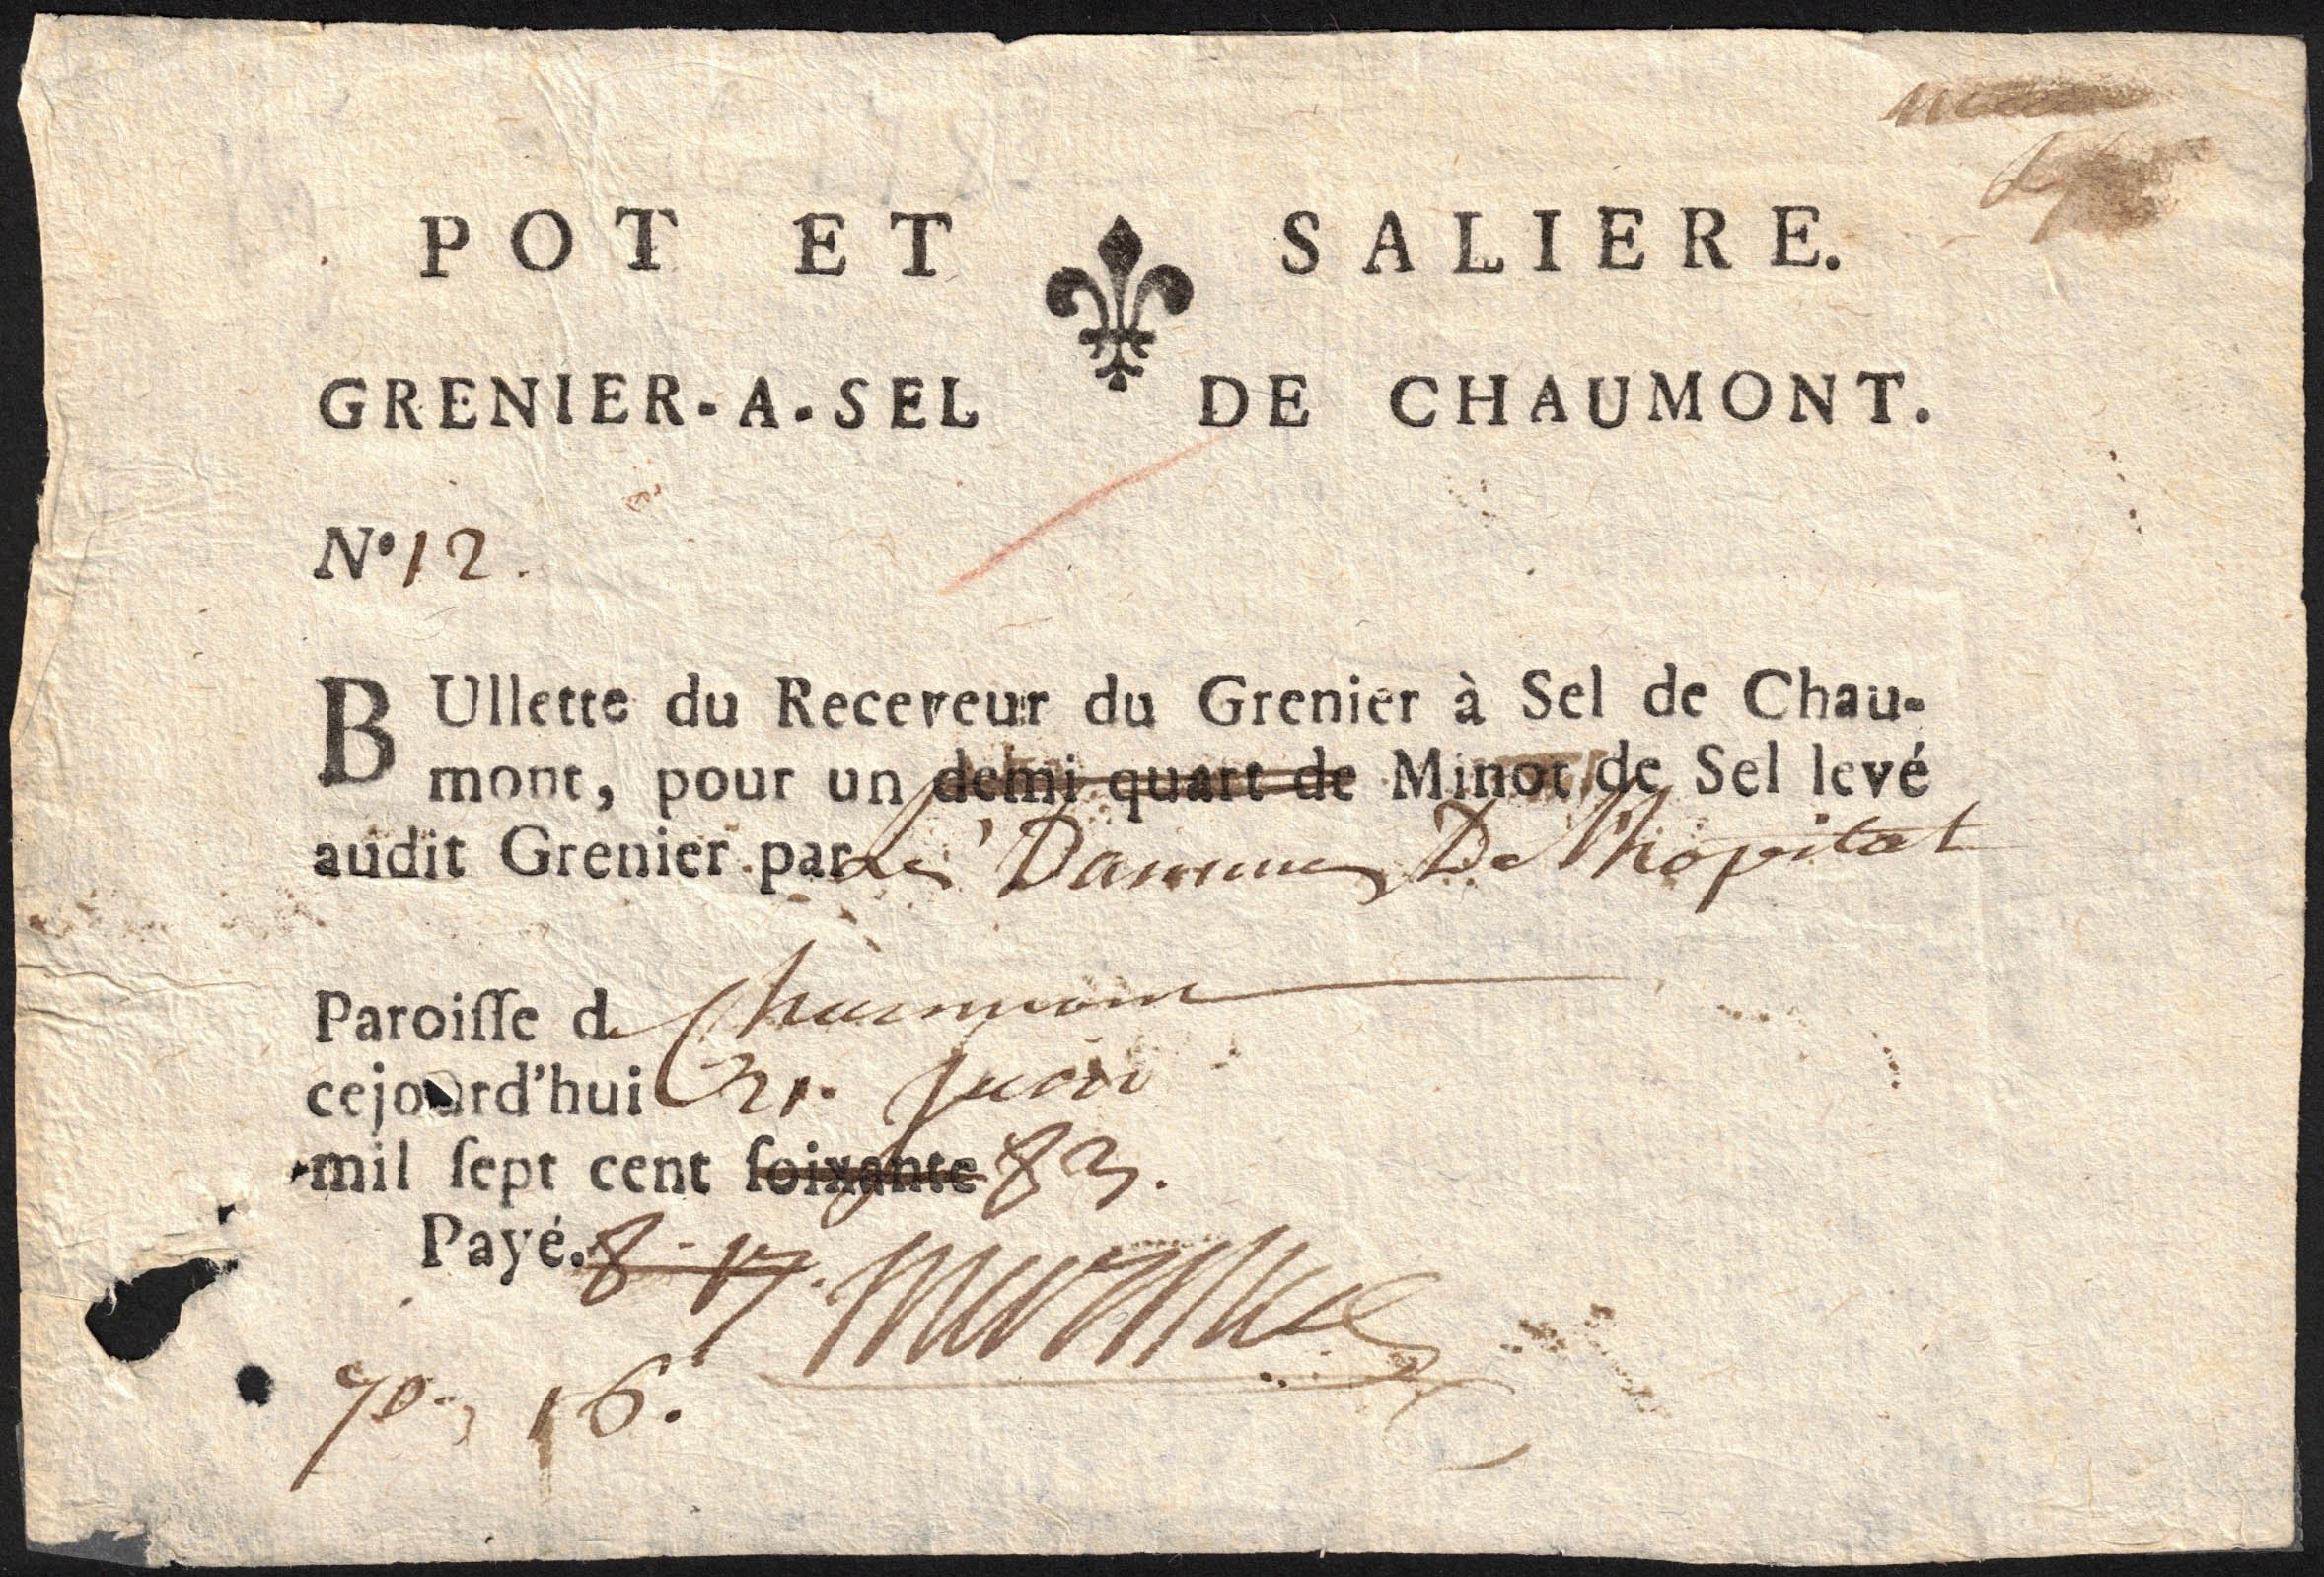 POT ET SALIERE.
GRENIER-A-SEL DE CHAUMONT.
N° 12.
BUllette du Receveur du Grenier à Sel de Chau-
mont, pour un demi quart de Minot de Sel levé
audit Grenier par les Dammes De l'hôpital
Paroiſſe de Chaumont
cejourd'hui 21.
mil ſept cent ſoixante 83.
Payé. 8-17.
70. 16.